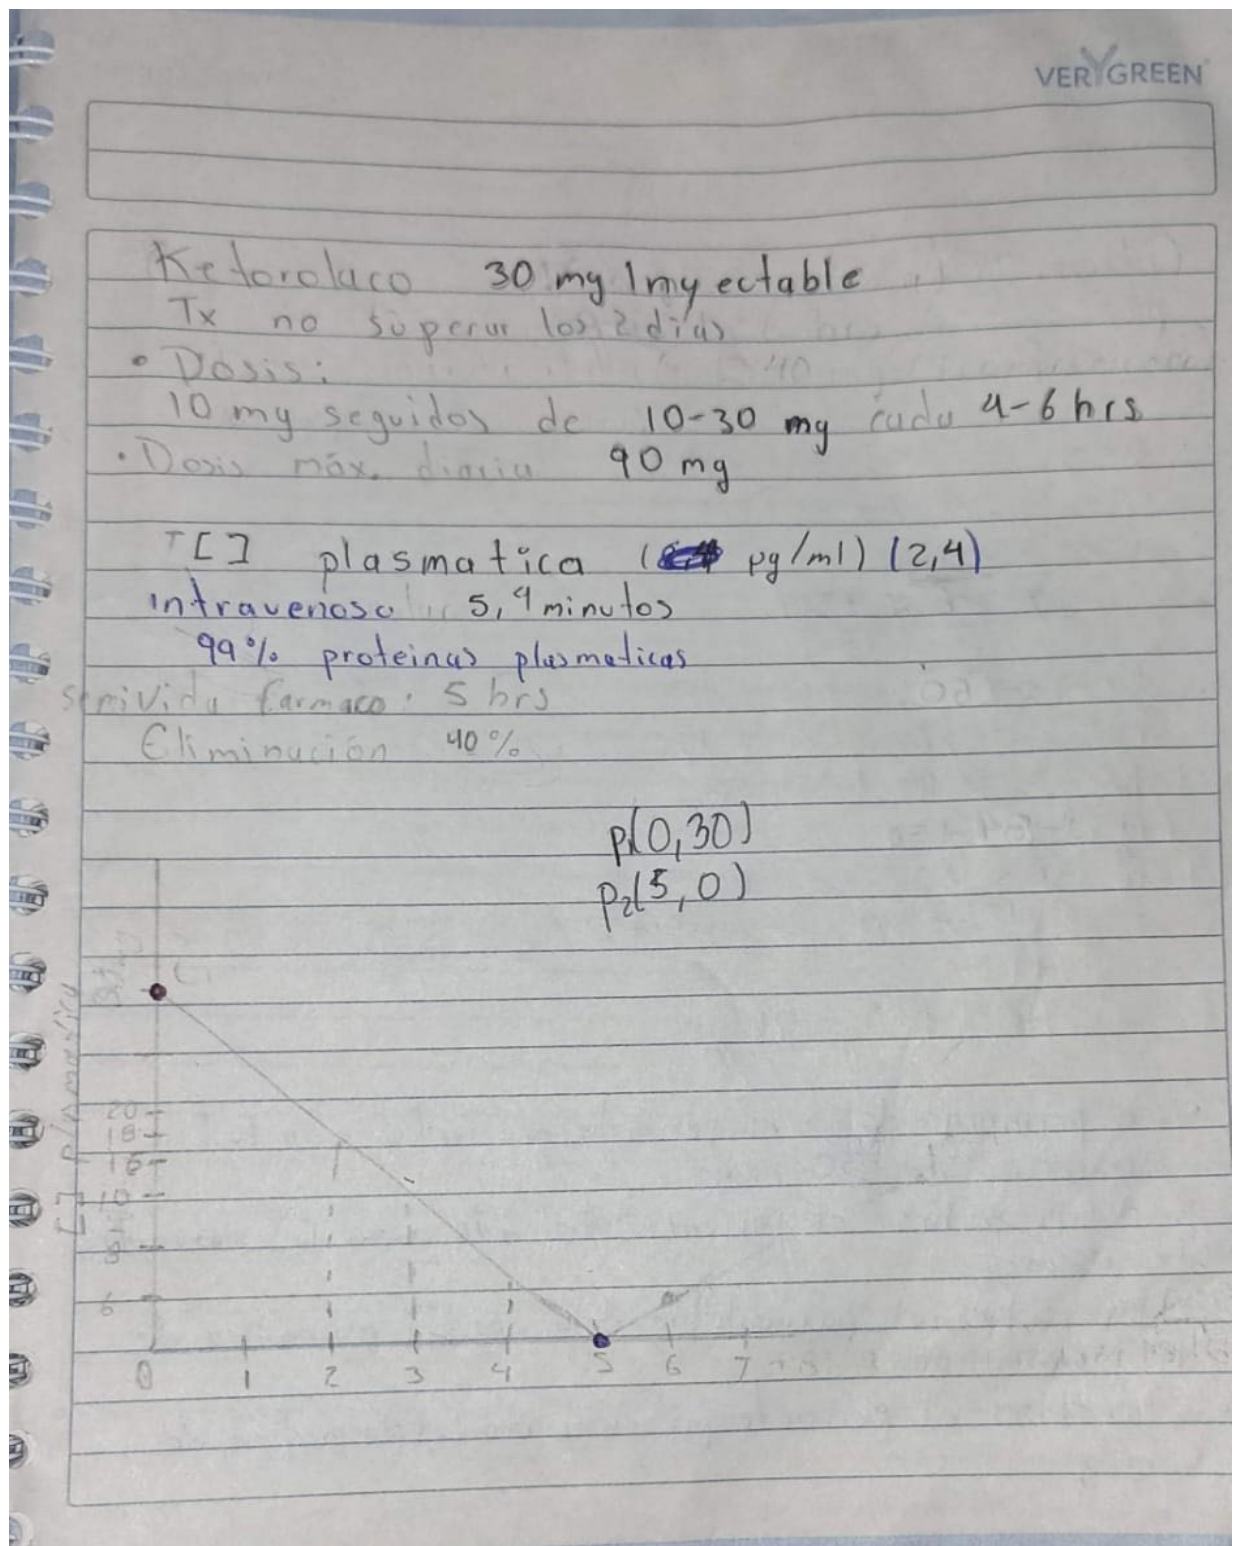 VERYGREEN
Ketorolaco 30 mg Inyectable
Tx no superar los 2 días
• Dosis:
10 mg seguidos de 10-30 mg cada 4-6 hrs
• Dosis máx. diaria 90 mg
[ ] plasmatica ( pg/ml) (2,4)
intravenosa 5,4 minutos
99% proteinas plasmaticas
semivida farmaco: 5 hrs
Eliminación 40%
P1(0,30)
P2(5,0)
[ ] plasmatica
20
18
16
10
8
6
0 1 2 3 4 5 6 7